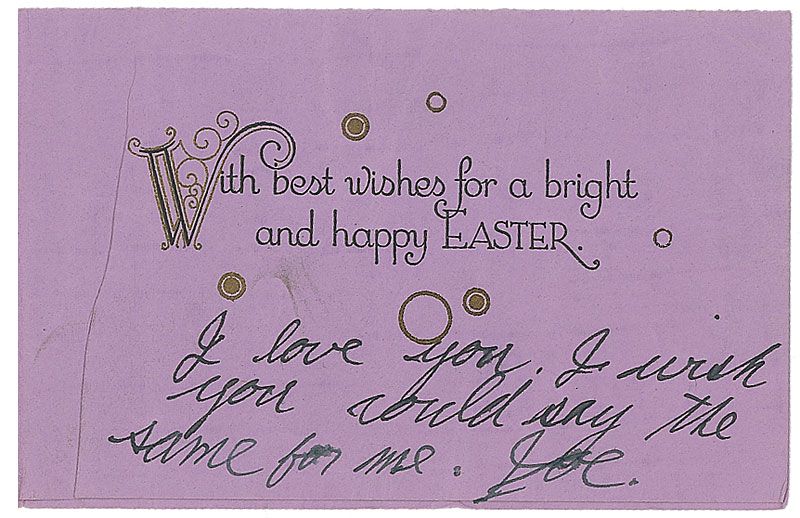 With best wishes for a bright
and happy EASTER.
I love you. I wish
you could say the
same for me. Joe.